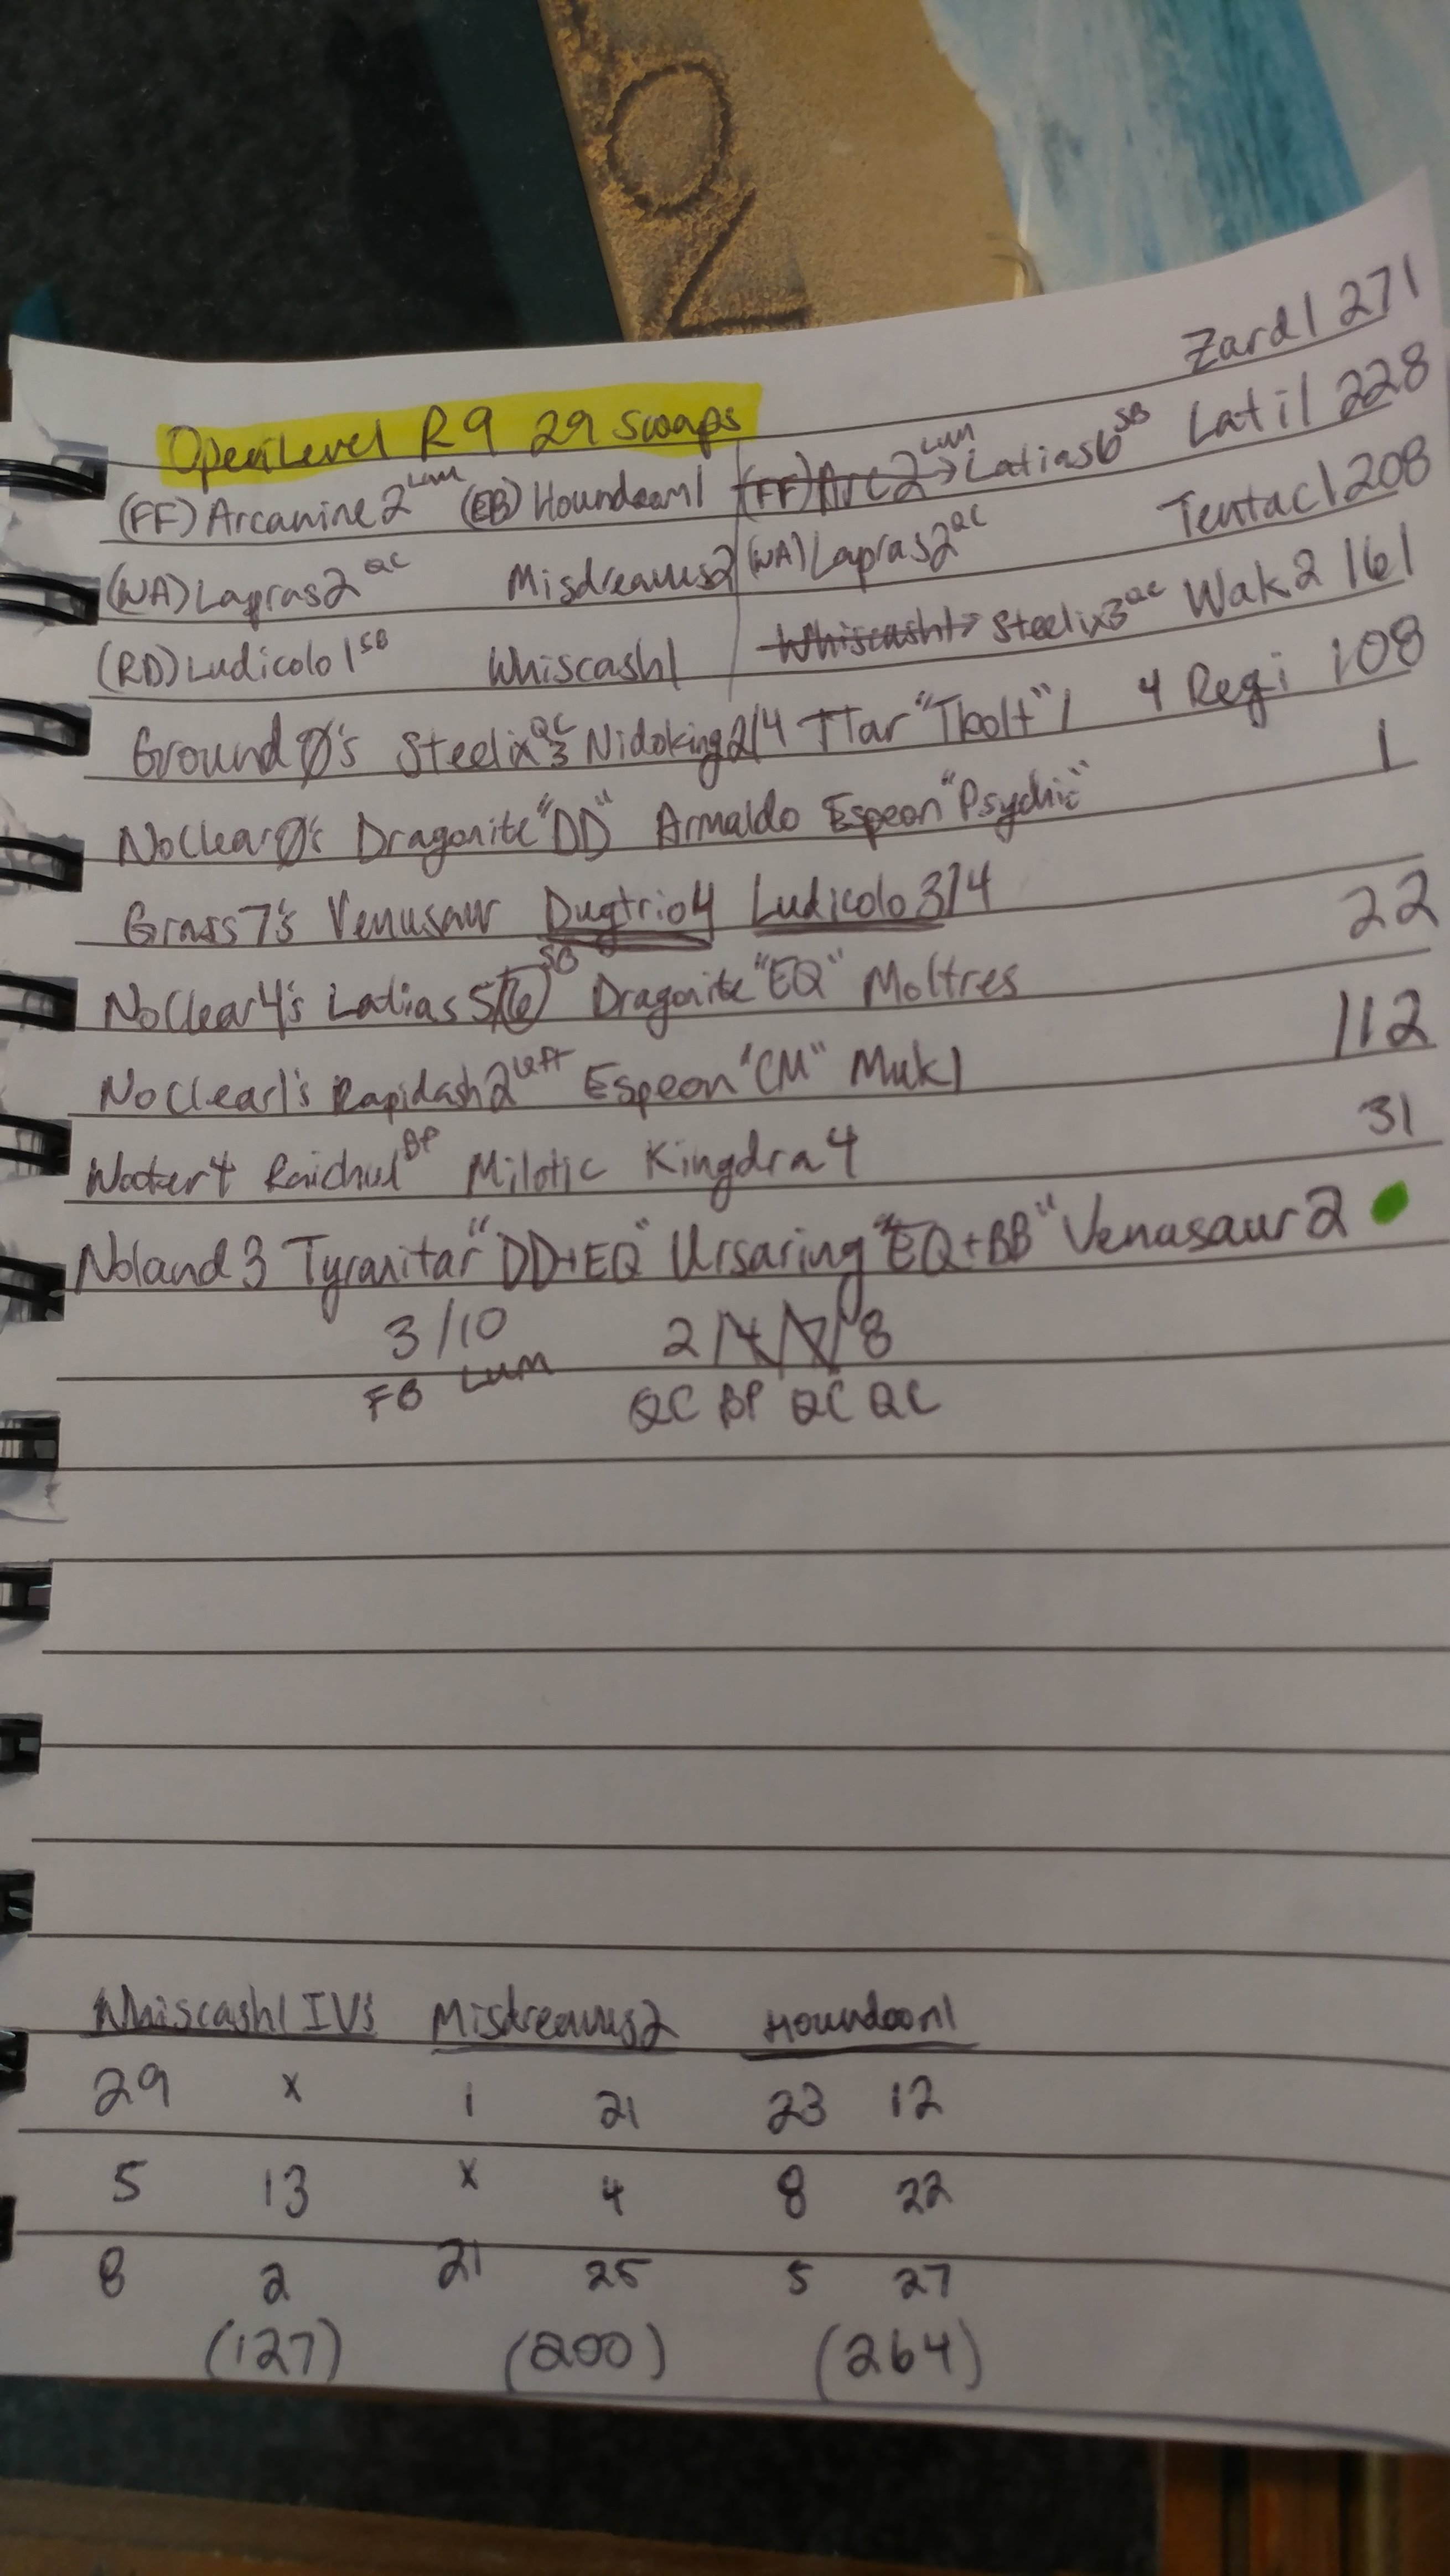 Open Level R9 29 swaps
Zard1 271
(FF) Arcanine2 Lum (EB) Houndoom1 (FF) Arc2 Lum → Latias6 SB Lati1 228
(WA) Lapras2 QC Misdreavus2 (WA) Lapras2 QC Tentac1 208
(RD) Ludicolo1 SB Whiscash1 Whiscash1 → Steelix3 QC Wak2 161
Ground Ø's Steelix3 QC Nidoking2/4 TTar "Tbolt" / 4 Regi 108
No Clear Ø's Dragonite "DD" Armaldo Espeon "Psychic" 1
Grass 7's Venusaur Dugtrio4 Ludicolo3/4
No Clear 4's Latias5/6 SB Dragonite "EQ" Moltres 22
No Clear 1's Rapidash2 Left Espeon "CM" Muk1 112
Water 4 Raichu1 BP Milotic Kingdra4 31
Noland 3 Tyranitar "DD+EQ" Ursaring "EQ+BB" Venusaur2
3/10 2/4/7/8
FB Lum QC BP QC QC
Whiscash1 IVs Misdreavus2 Houndoom1
29 x 1 21 23 12
5 13 x 4 8 22
8 2 21 25 5 27
(127) (200) (264)